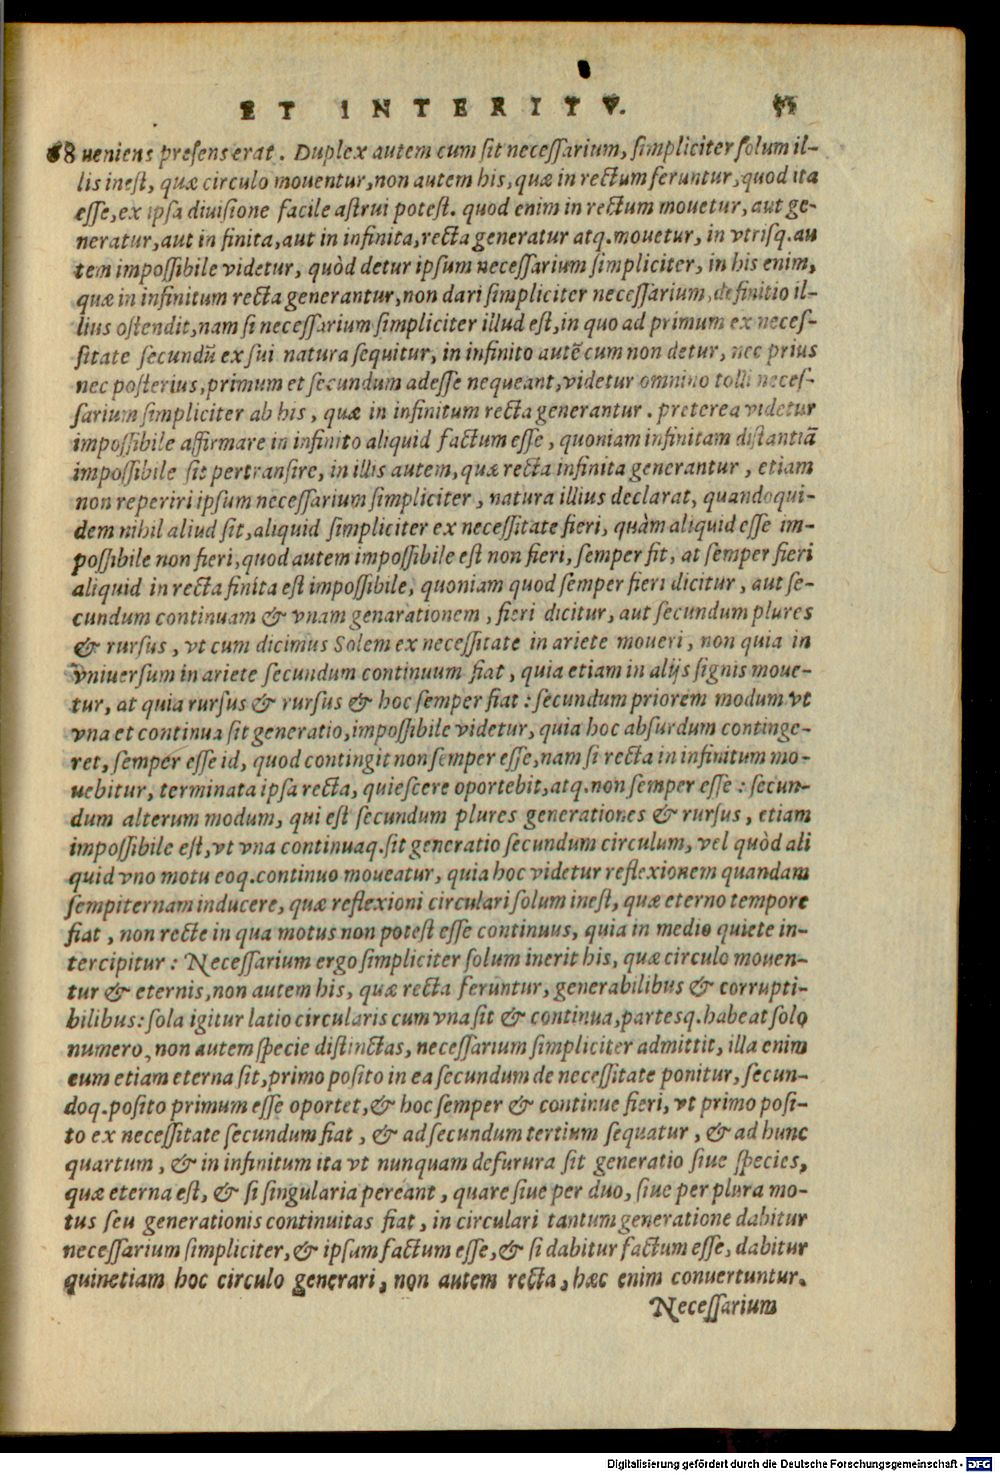 ET INTERITV.
68 ueniens presens erat. Duplex autem cum sit necessarium, simpliciter solum il-
lis inest, quæ circulo mouentur, non autem his, quæ in rectum feruntur, quod ita
esse, ex ipsa diuisione facile astrui potest. quod enim in rectum mouetur, aut ge-
neratur, aut in finita, aut in infinita, recta generatur atq. mouetur, in vtrisq. au
tem impossibile videtur, quòd detur ipsum necessarium simpliciter, in his enim,
quæ in infinitum recta generantur, non dari simpliciter necessarium, definitio il-
lius ostendit, nam si necessarium simpliciter illud est, in quo ad primum ex neces-
sitate secundũ ex sui natura sequitur, in infinito autẽ cum non detur, nec prius
nec posterius, primum et secundum adesse nequeant, videtur omnino tolli neces-
sarium simpliciter ab his, quæ in infinitum recta generantur. preterea videtur
impossibile affirmare in infinito aliquid factum esse, quoniam infinitam distantiã
impossibile sit pertransire, in illis autem, quæ recta infinita generantur, etiam
non reperiri ipsum necessarium simpliciter, natura illius declarat, quandoqui-
dem nihil aliud sit, aliquid simpliciter ex necessitate fieri, quàm aliquid esse im-
possibile non fieri, quod autem impossibile est non fieri, semper fit, at semper fieri
aliquid in recta finita est impossibile, quoniam quod semper fieri dicitur, aut se-
cundum continuam & vnam genarationem, fieri dicitur, aut secundum plures
& rursus, vt cum dicimus Solem ex necessitate in ariete moueri, non quia in
vniuersum in ariete secundum continuum fiat, quia etiam in alijs signis moue-
tur, at quia rursus & rursus & hoc semper fiat: secundum priorem modum vt
vna et continua sit generatio, impossibile videtur, quia hoc absurdum continge-
ret, semper esse id, quod contingit non semper esse, nam si recta in infinitum mo-
uebitur, terminata ipsa recta, quiescere oportebit, atq. non semper esse: secun-
dum alterum modum, qui est secundum plures generationes & rursus, etiam
impossibile est, vt vna continuaq. sit generatio secundum circulum, vel quòd ali
quid vno motu eoq. continuo moueatur, quia hoc videtur reflexionem quandam
sempiternam inducere, quæ reflexioni circulari solum inest, quæ eterno tempore
fiat, non recte in qua motus non potest esse continuus, quia in medio quiete in-
tercipitur: Necessarium ergo simpliciter solum inerit his, quæ circulo mouen-
tur & eternis, non autem his, quæ recta feruntur, generabilibus & corrupti-
bilibus: sola igitur latio circularis cum vna sit & continua, partesq. habeat solo
numero, non autem specie distinctas, necessarium simpliciter admittit, illa enim
cum etiam eterna sit, primo posito in ea secundum de necessitate ponitur, secun-
doq. posito primum esse oportet, & hoc semper & continue fieri, vt primo posi-
to ex necessitate secundum fiat, & ad secundum tertium sequatur, & ad hunc
quartum, & in infinitum ita vt nunquam defurura sit generatio siue species,
quæ eterna est, & si singularia pereant, quare siue per duo, siue per plura mo-
tus seu generationis continuitas fiat, in circulari tantum generatione dabitur
necessarium simpliciter, & ipsum factum esse, & si dabitur factum esse, dabitur
quinetiam hoc circulo generari, non autem recta, hæc enim conuertuntur.
Necessarium
Digitalisierung gefördert durch die Deutsche Forschungsgemeinschaft - DFG